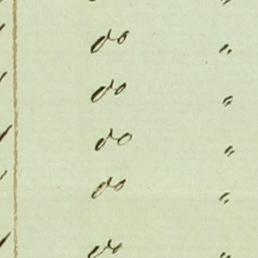 do "
do "
do "
do "
do "